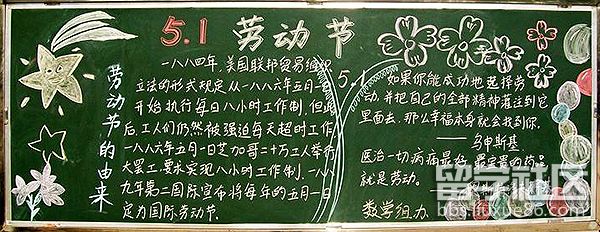 5.1 劳动节
劳动节的由来
一八八四年,美国联邦贸易组织
立法的形式规定从一八八六年五月一
开始执行每日八小时工作制,但此
后,工人们仍然被强迫每天超时工作
一八八六年五月一日芝加哥二十万工人举行
大罢工,要求实现八小时工作制,一八八
九年第二国际宣布将每年的五月一日
定为国际劳动节.
5.1
如果你能成功地选择劳
动,并把自己的全部精神灌注到它
里面去,那么幸福本身就会找到你.
——乌申斯基
医治一切病痛最好,最宝贵的药品
就是劳动.
数学组办
留学社区
bbs.liuxue86.com